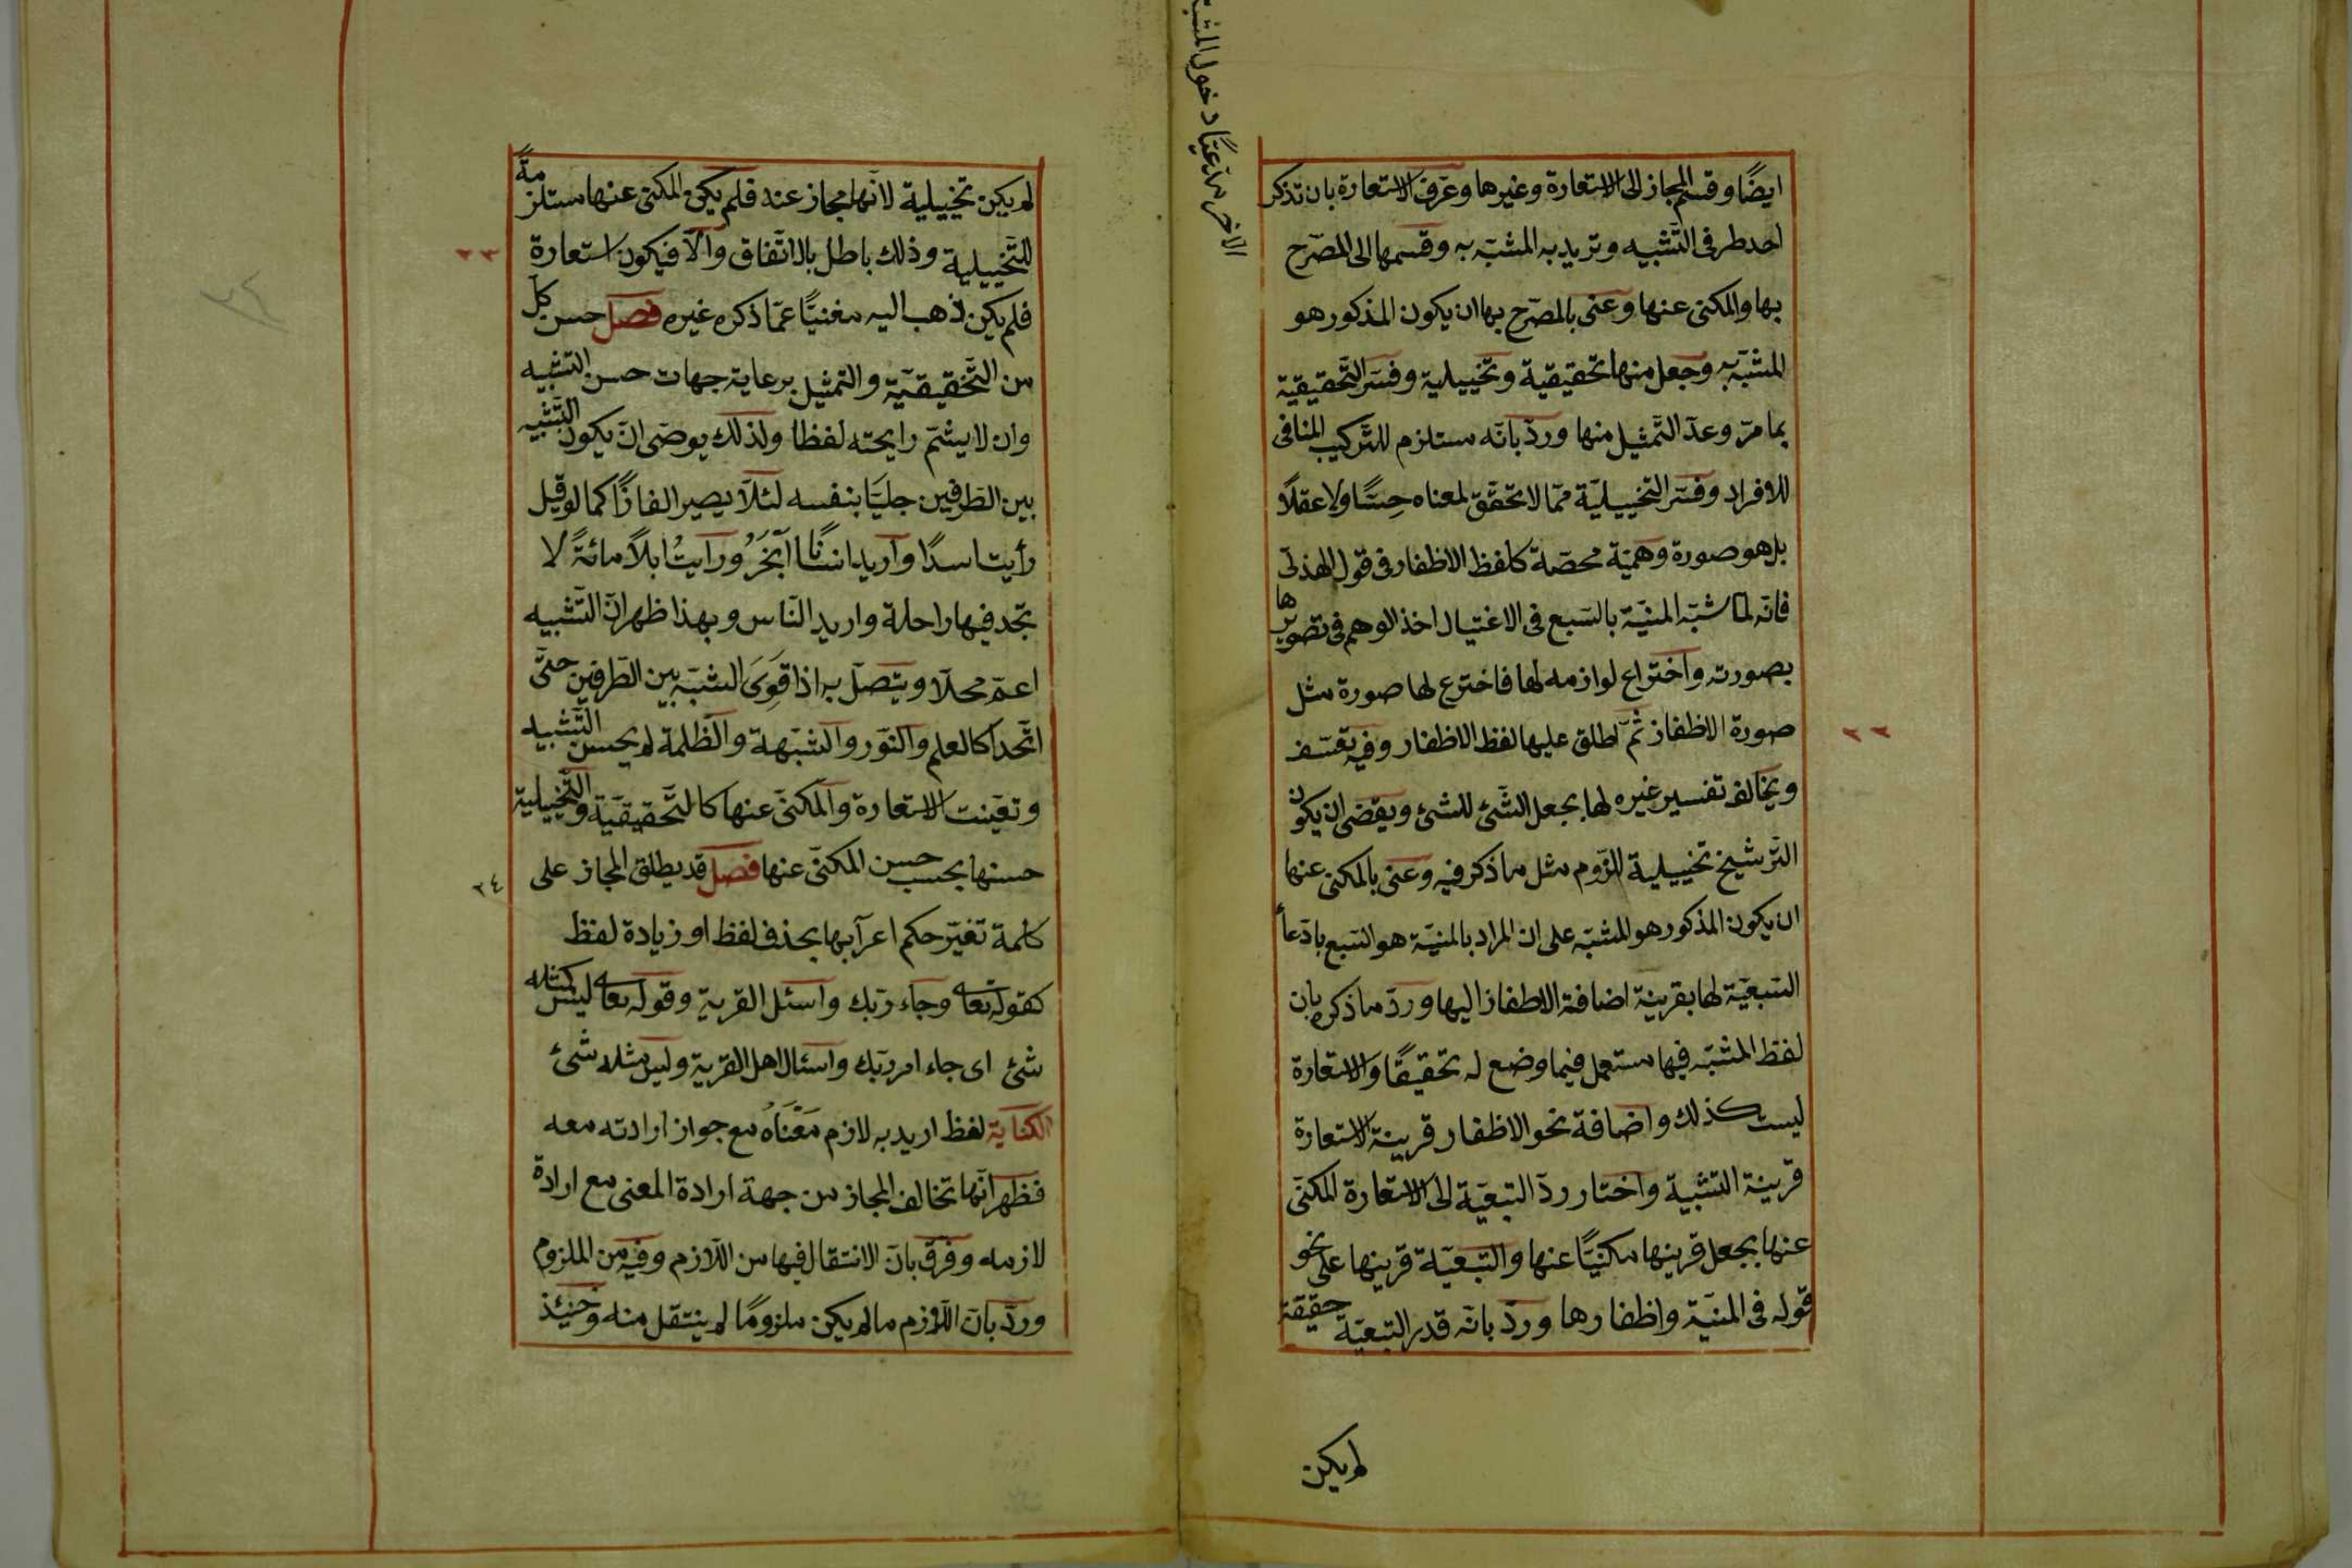 ايضًا وقسم المجاز الى الاستعارة وغيرها وعرف الاستعارة بان تذكر
احد طرفى التّشبيه وتريد به المشبّه به وقسمها الى المصرّح
بها والمكنى عنها وعنى بالمصرّح بها ان يكون المذكور هو
المشبّه به وجعل منها تحقيقية وتخييلية وفسّر التّحقيقية
بما مرّ وعدّ التّمثيل منها وردّ بانّه مستلزم للتّركيب المنافى
للافراد وفسّر التخييليّة ممّا لا تحقّق لمعناه حِسًّا ولا عقلًا
بل هو صورة وهميّة محصّة كلفظ الاظفار فى قول الهذلى
فانّه لمّا شبّه المنيّة بالسّبع فى الاغتيال اخذ الوهم فى تصويرها
بصورته واختراع لوازمه لها فاخترع لها صورة مثل
صورة الاظفار ثمّ اطلق عليها لفظ الاظفار وفيه تعسّف
ويخالف تفسير غيره لها بجعل الشّئ للشئ ويقضى ان يكون
التّرشيح تخييلية للزوم مثل ما ذكر فيه وعنى بالمكنى عنها
ان يكون المذكور هو المشبّه على ان المراد بالمنيّة هو السّبع بادّعأ
السّبعيّة لها بقرينة اضافة الاظفار اليها وردّ ما ذكره بان
لفظ المشبّه فيها مستعمل فيما وضع له تحقيقًا والاستعارة
ليست كذلك واضافة نحو الاظفار قرينة الاستعارة
قرينة التشبية واختار ردّ التّبعيّة الى الاستعارة المكنّى
عنها بجعل قرينها مكنيّاً عنها والتّبعيّة قرينها على نحو
قوله فى المنيّة واظفارها وردّ بانّه قدر التّبعيّة حقيقة
لم يكن
الاخر مدّعيًا دخول المشبّه
لم يكن تخييلية لانّها مجاز عنده فلم يكن المكنى عنها مستلزمةً
للتّخييلية وذلك باطل بالاتّفاق والّا فيكون استعارة
فلم يكن ذهب اليه مغنيًّا عمّا ذكره غيره فصل حسن كلّ
من التّحقيقيّة والتمثيل برعاية جهات حسن التشبيه
وان لا يشمّ رايحته لفظا ولذلك يوصى ان يكون التّشبيه
بين الطّرفين جليّا بنفسه لئلّا يصير الغازًا كما لو قيل
رأيت اسدًا واريد انسانًا ابخَرُ ورايتُ ابلًا مائةً لا
تجد فيها راحلة واريد النّاس وبهذا ظهر انّ التّشبيه
اعمّ محلّا ويتّصل به اذا قَوِىَ الشّبه بين الطّرفين حتّى
اتّحدا كالعلم والنّور والشّبهة والظّلمة لم يحسن التّشبيه
وتعيّنت الاستعارة والمكنّى عنها كالتّحقيقيّة والتّخييلية
حسنها بحسب حسن المكنّى عنها فصل قد يطلق المجاز على
كلمة تغيّر حكم اعرابها بحذف لفظ او زيادة لفظ
كقوله تعالى وجاء ربّك واسئل القرية وقوله تعالى ليس كمثله
شئ اى جاء امر ربّك واسئال اهل القرية وليس مثله شئ
الكناية لفظ اريد به لازم مَعْنَاهُ مع جواز ارادته معه
فظهر انّها تخالف المجاز من جهة ارادة المعنى مع ارادة
لازمه وفرّق بانّ الانتقال فيها من اللّازم وفيه من الملزوم
وردّ بانّ اللّازم ما لم يكن ملزومًا لم ينتقل منه وحنيئذ
٢٢
٢٣
٢٤
٢٤